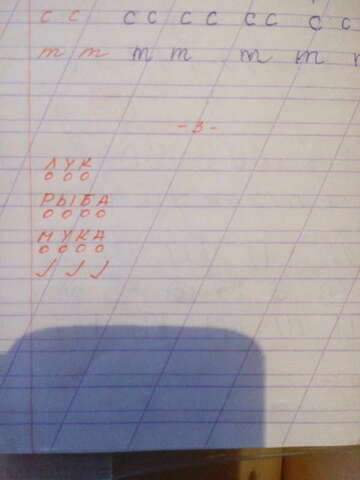 с с с с с с с с с с
т т т т т т
- 3 -
ЛУК
о о о
РЫБА
о о о о
МУКА
о о о о